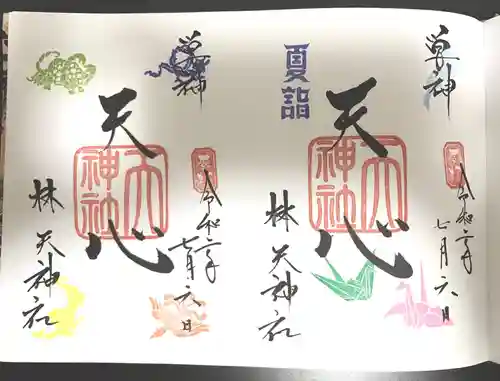 單神
天心
天神社
令和二年
七月六日
林天神社
夏詣
單神
天心
天神社
令和二年
七月六日
林天神社